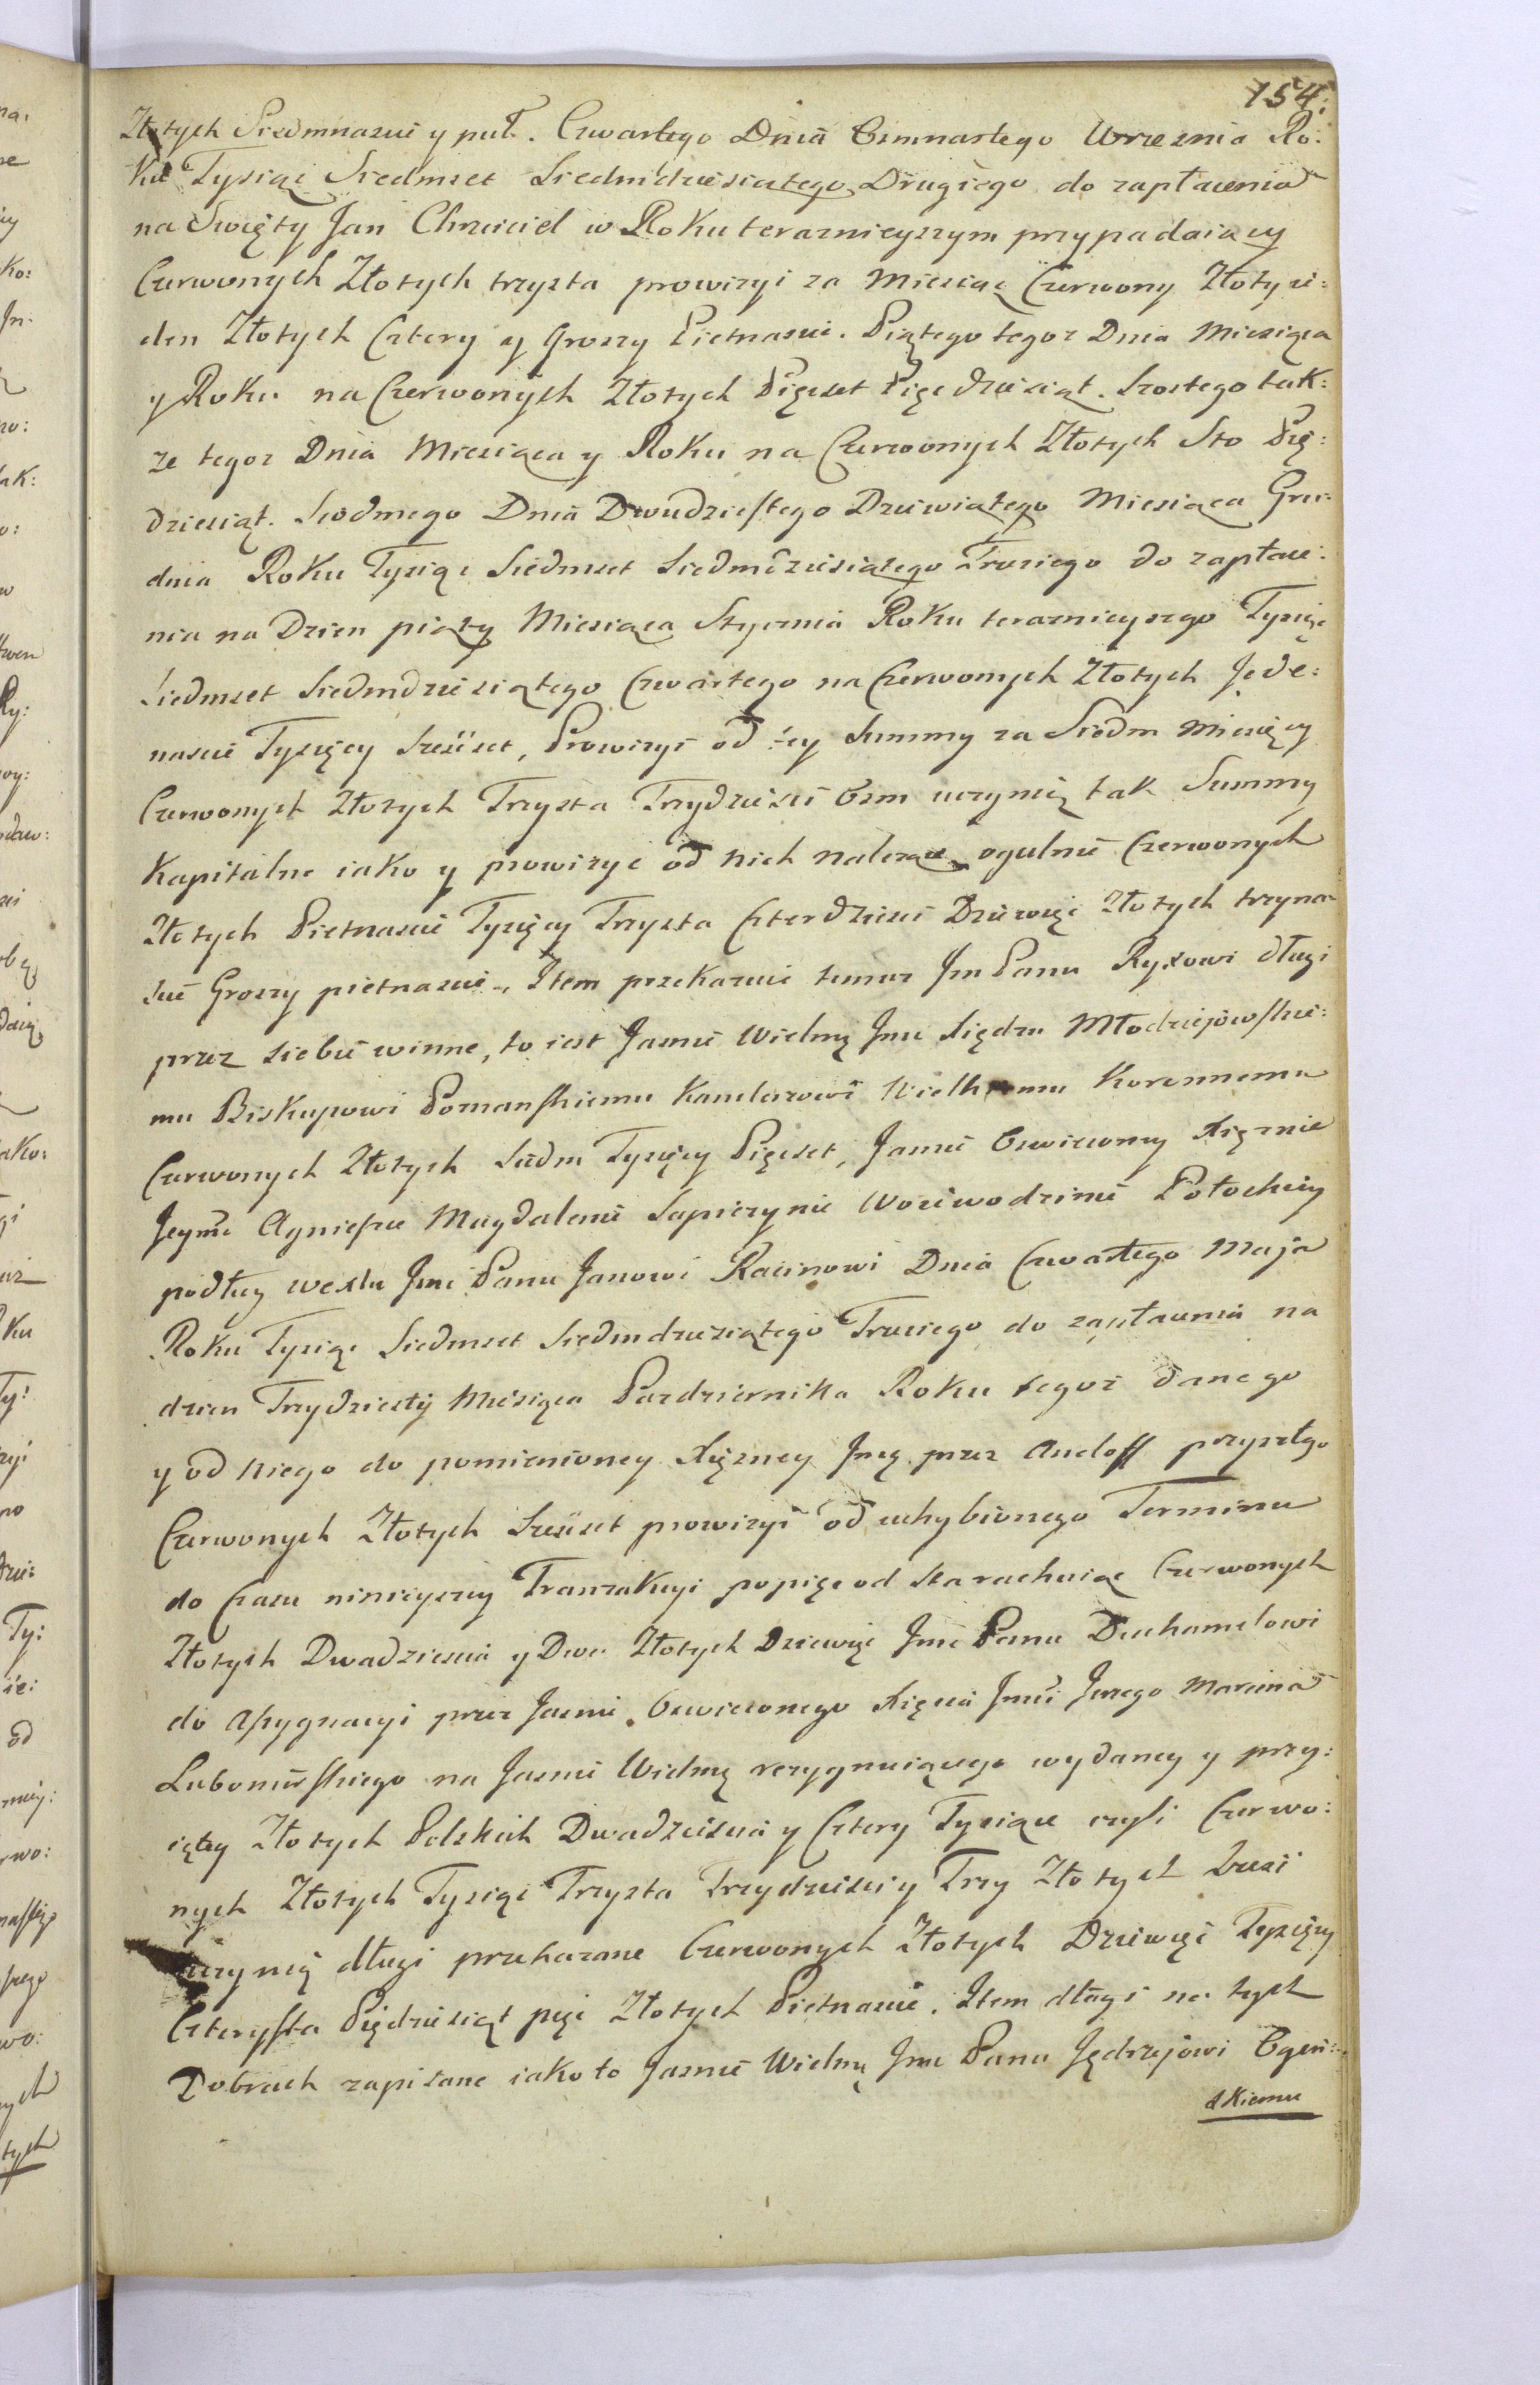 154.
Złotych Siedmnascie y puł. Czwartego Dnia Osmnastego Wrzesnia Ro:
ku Tysiąc Siedmset Siedmdziesiątego Drugiego do zapłacenia
na Swięty Jan Chrzciciel w Roku teraznieyszym przypadaiący
Czerwonych Złotych trzysta prowizyi za Miesiąc Czerwony Złoty ie:
den Złotych Cztery y Groszy Pietnascie. Piątego tegoz Dnia Miesiąca
y Roku na Czerwonych Złotych Pięcset Pięcdziesiąt. Szostego tak:
ze tegoz Dnia Miesiąca y Roku na Czerwonych Złotych Sto Pię:
dziesiąt. Siodmego Dnia Dwudziestego Dziewiątego Miesiąca Gru:
dnia Roku Tysiąc Siedmset Siedmdziesiątego Trzeciego do zapłace:
nia na Dzien piąty Miesiąca Stycznia Roku teraznieyszego Tysiąc
Siedmset Siedmdziesiątego Czwartego na Czerwonych Złotych Jede:
nascie Tysięcy Sześćset, Prowizyi od tey Summy za Siedm Miesięcy
Czerwonych Złotych Trzysta Trzydzieści Osm uczynią tak Summy
Kapitalne iako y prowizye od nich nalezące ogulnie Czerwonych
Złotych Pietnascie Tysięcy Trzysta Czterdziesci Dziewięć Złotych trzyna:
scie Groszy pietnascie, Item przekazuie temuz Jm Panu Ryxowi długi
przez siebie winne, to iest Jasnie Wielmę Jmc Xiędzu Młodziejowskie:
mu Biskupowi Poznanskiemu Kanclerzowi Wielkiemu Koronnemu
Czerwonych Złotych Siedm Tysięcy Pięcset, Jasnie Oswieconey Xięznie
Jeymc Agnieszce Magdalenie Sapiezynie Woiewodzinie Połockiey
podług wexlu Jmc Panu Janowi Racinowi Dnia Czwartego Maja
Roku Tysiąc Siedmset Siedmdziesiątego Trzeciego do zapłacenia na
dzien Trzydziesty Miesiąca Pazdziernika Roku tegoż danego
y od niego do pomienioney Xięzney Jmę przez Andoss przyszłego
Czerwonych Złotych Sześcset prowizyi od uchybionego Terminu
do Czasu ninieyszey Tranzakcyi popięc od sta rachuiąc Czerwonych
Złotych Dwadziescia y Dwa Złotych Dziewięć Jmc Panu Duhamelowi
do Assygnacyi przez Jasnie Oswieconego Xięcia Jmci Jerzego Marcina
Lubomirskiego na Jasnie Wielmę rezygnuiącego wydaney y przy:
iętey Złotych Polskich Dwadziescia y Cztery Tysiące czyli Czerwo:
nych Złotych Tysiąc Trzysta Trzydziesci y Trzy Złotych Szesć
uczynią długi przekazane Czerwonych Złotych Dziewięć Tysięcy
Czterysta Pięcdziesiąt pięć Złotych Pietnascie. Item długi na tych
Dobrach zapisane iako to Jasnie Wielmę Jmc Panu Jędrzejowi Ogin:
skiemu